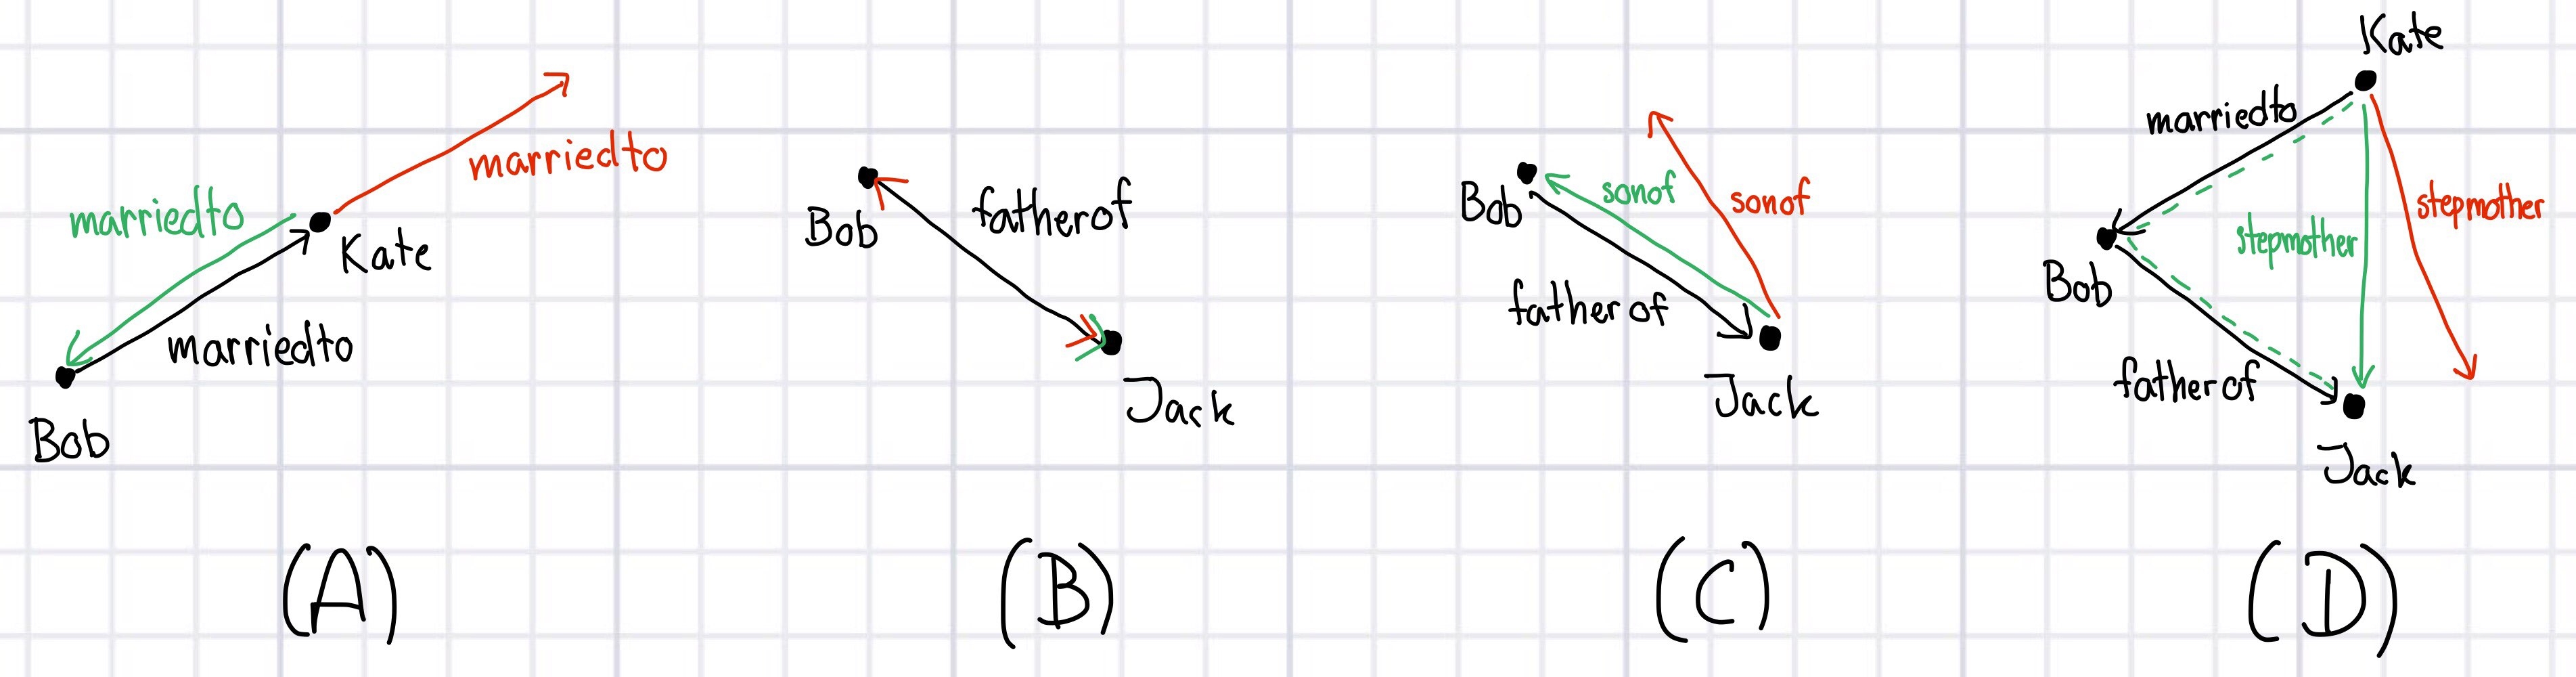 marriedto
marriedto
Kate
marriedto
Bob
(A)
fatherof
Bob
Jack
(B)
sonof
sonof
Bob
fatherof
Jack
(C)
Kate
marriedto
stepmother
stepmother
Bob
fatherof
Jack
(D)